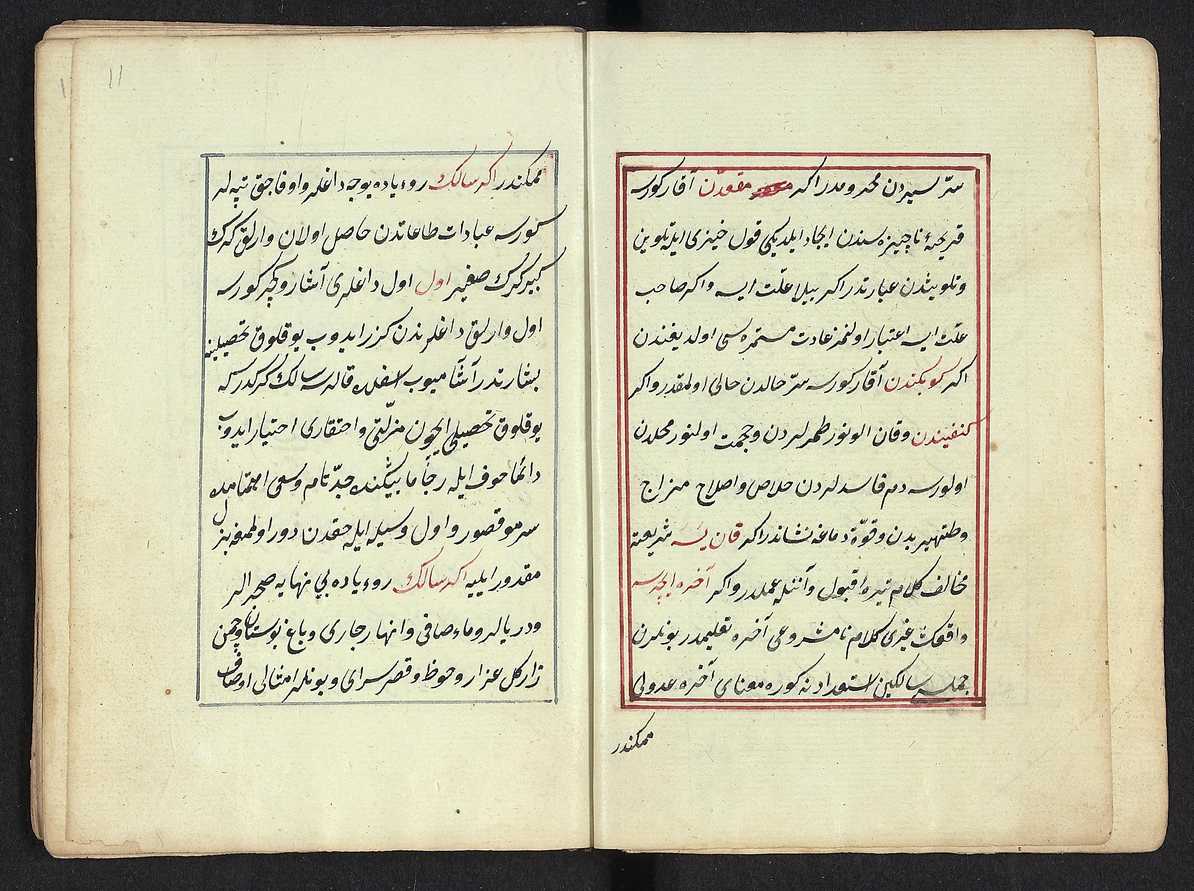 سرّ سیردن محرومدر اکر مقعدن آقار کورسه
قریحهٔ ناچیزه سندن ایجاد ایلدیکی قول خیزی ایله تلوین
وتلویثدن عبارتدر اکر بیلا علّت ایسه واکر صاحب
علّت ایسه اعتبار اولنمز عادت مستمره سی اولدیغندن
اکر کوبکندن آقار کورسه سرّ حالدن حالی اولمقدر واکر
کتفیندن وقان النور طمرلردن وحجمت اولنور محلدن
اولورسه دم فاسدلردن خلاص واصلاح مزاج
وتطهیر بدن وقوّة دماغه نشاندر اکر قان ایسه شریعته
مخالف کلام نیره اقبول وآنکله عملدر واکر آخره ایچرسه
واقعک غیری کلام نامشروعی آخره تعلیمدر بونلرن
جمله سی سالکین استعدادنه کوره معنای آخره عدولی
ممکندر
11
ممکندر اکر سالک رویاده یوجه داغلر واوفاجق تپه لر
کورسه عبادات طاعاتدن حاصل اولان وارلق کرک
کبیر کرک صغیر اول اول داغلری آشار وکچر کورسه
اول وارلق داغلرندن کزر ایدوب یوقلوق تحصیلینه
بشارتدر آشامیوب اسفلده قالورسه سالک کرکدر که
یوقلوق تحصیلی ایچون مذلّتی واحتقاری اختیار ایدوب
دائما خوف ایله رجا ما بیننده جدّ تام وسعی اهتمامده
سرمو قصور واول وسیله ایله حقدن دور اولمغه بذل
مقدور ایلیه اکر سالک رویاده بی نهایه صحرالر
ودریالر وماء صافی وانهار جاری وباغ بوستان وچمن
زار کل عذار وحوض وقصر سرای وبونلر امثالی اوصاف